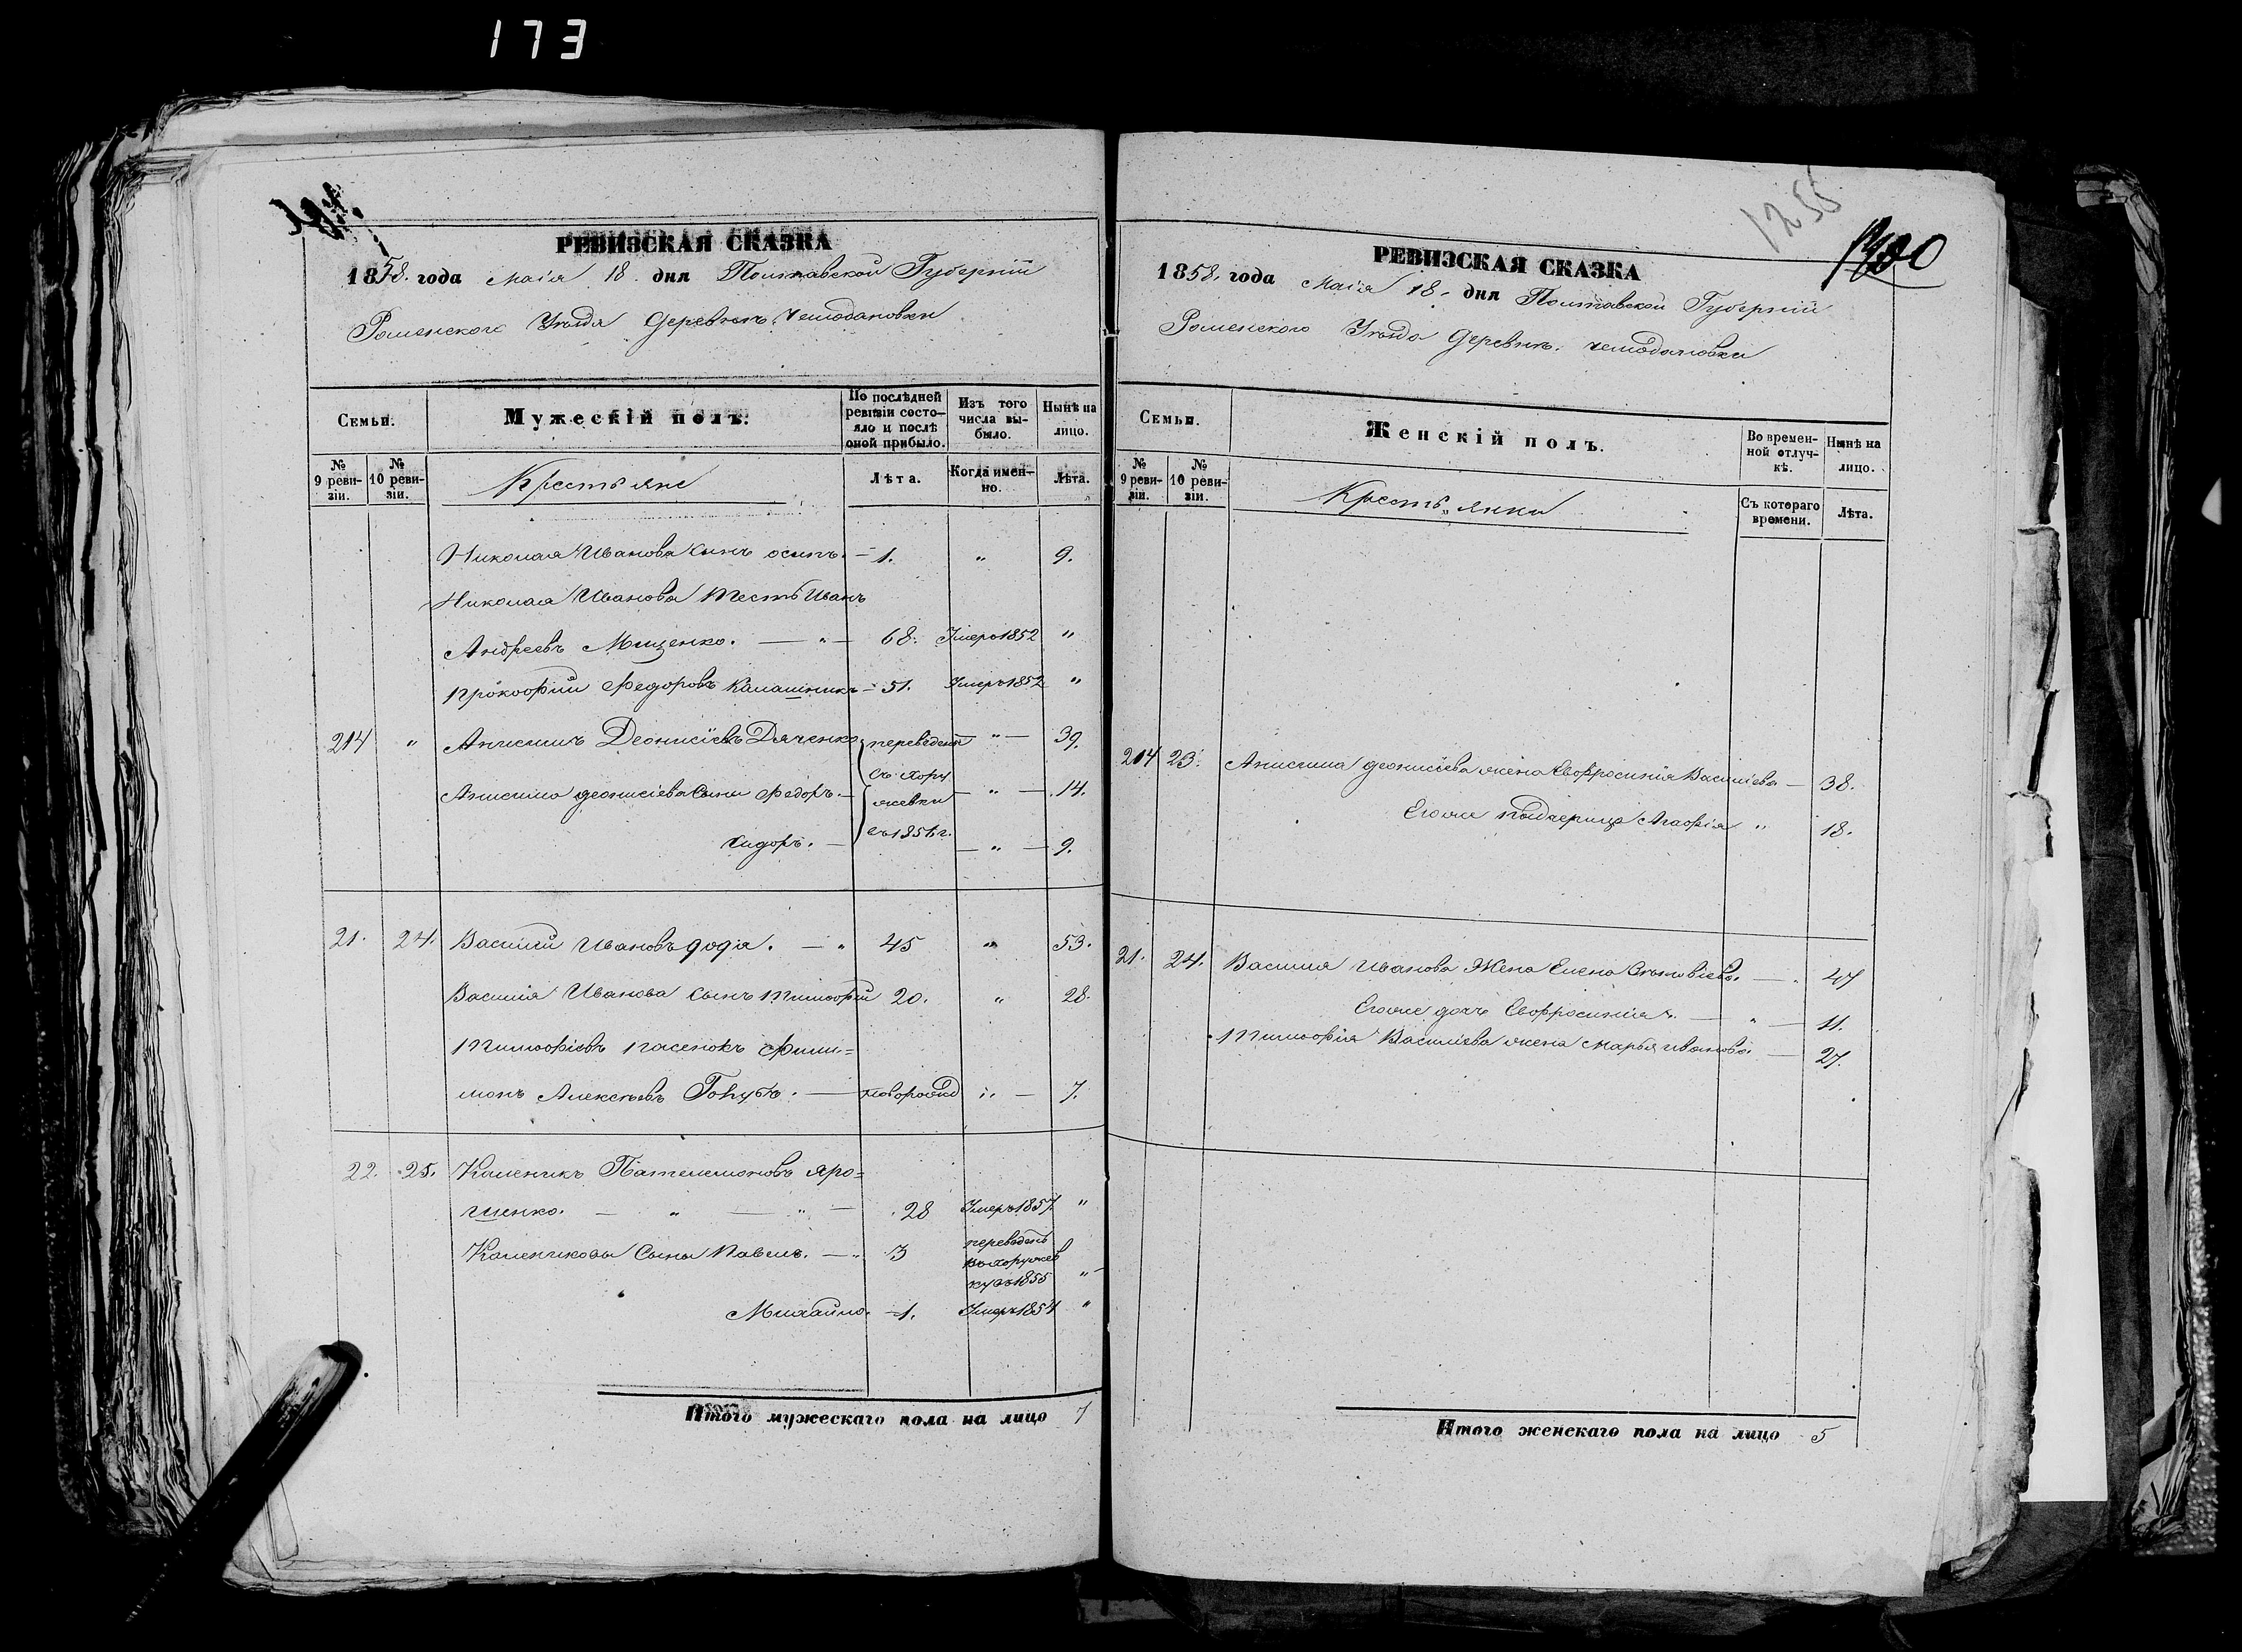 173
РЕВИЗСКАЯ СКАЗКА
1858. года Маія 18. дня Полтавской Губерніи
Роменского Уезда Деревнѣ. Чемодановки
Семьи.
Мужескій полъ.
По послѣдней ревизіи состояло и послѣ оной прибыло.
Изъ того числа выбыло.
Нынѣ на лицо.
№ 9 ревизіи.
№ 10 ревизіи.
Крестьяне
Лѣта.
Когда именно.
Лѣта.
Николая Иванова сынъ осипъ. — 1. " 9.
Николая Иванова тесть Иванъ
Андреевъ Мищенко. — " — 68. Умеръ 1852 "
Прокофій Федоровъ Калашникъ — 51. Умеръ 1852 "
214 " Анисимъ Деонисіевъ Дяченко переведены — " — 39.
съ хору
Анисима деонисіева сыны Федоръ. — жевки — " — 14.
Сидоръ. — — " — 9.
21. 24. Василій Ивановъ додя. — " 45 " 53.
Василія Иванова сынъ Тимофій 20. " 28.
Тимофіевъ пасенокъ Фили=
монъ Алексѣевъ Голубъ. — новорожд " — 7.
22. 25. Каленикъ Пателемоновъ Яро=
шенко. — " — " — 28 Умеръ 1857. "
Калениковы Сыны Павелъ. — " 3 переведенъ
въ хоружев
ку въ 1855 "
Михайло. — 1. Умеръ 1854 "
Итого мужескаго пола на лицо 7
1255
1400
РЕВИЗСКАЯ СКАЗКА
1858. года Маія 18. дня Полтавской Губерніи
Роменского Уезда Деревнѣ. чемодановки
Семьи.
Женскій полъ.
Во временной отлучкѣ.
Нынѣ на лицо.
№ 9 ревизіи.
№ 10 ревизіи.
Крестьянки
Съ котораго времени.
Лѣта.
214 23. Анисима деонисіева жена Евфросинія Василіева — 38.
Егоже падчерица Агафія " 18.
21. 24. Василія Иванова Жена Елена — " 47
Егоже дочь Евфросинія. — " — 11.
Тимофія Василіева жена Марья иванова. — 27.
Итого женскаго пола на лицо 5